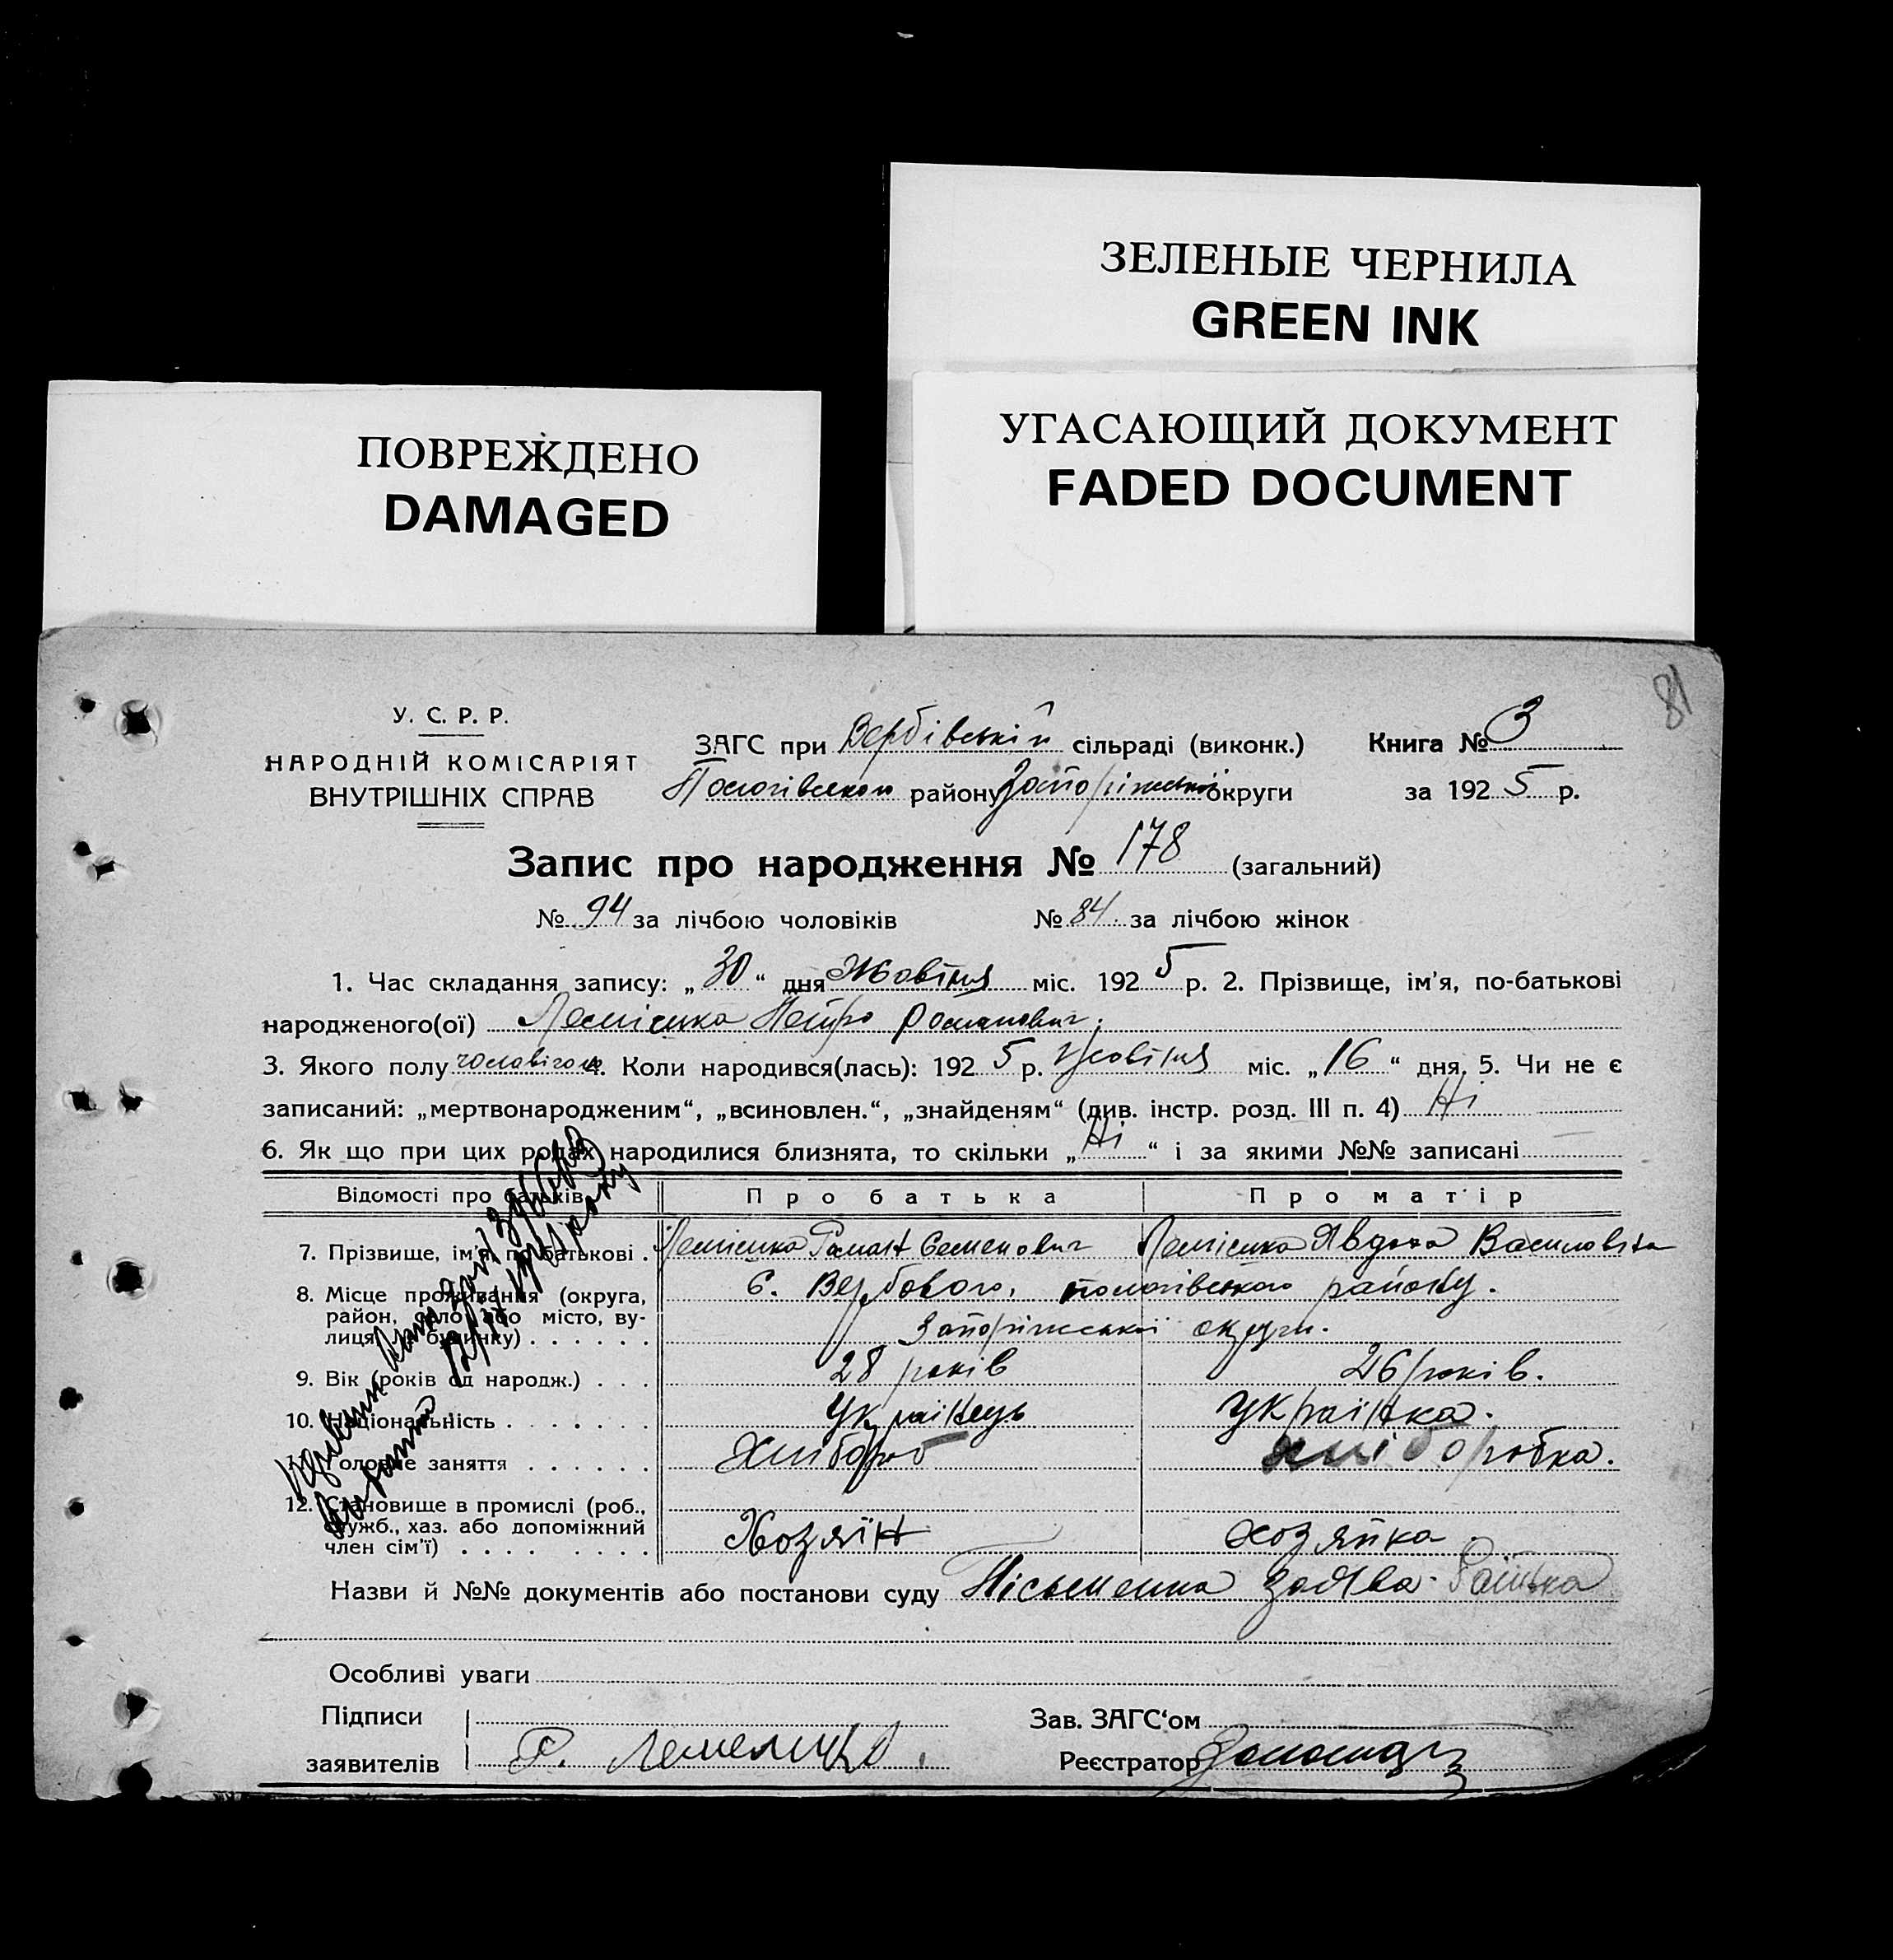 ЗЕЛЕНЫЕ ЧЕРНИЛА
GREEN INK
УГАСАЮЩИЙ ДОКУМЕНТ
FADED DOCUMENT
ПОВРЕЖДЕНО
DAMAGED
81
У. С. Р. Р.
НАРОДНІЙ КОМІСАРІЯТ
ВНУТРІШНІХ СПРАВ
ЗАГС при Вербівській сільраді (виконк.) Книга № 3
Пологівського району Запоріжської округи за 1925 р.
Запис про народження № 178 (загальний)
№ 94 за лічбою чоловіків № 84 за лічбою жінок
1. Час складання запису: „30“ дня Жовтня міс. 1925 р. 2. Прізвище, ім'я, по-батькові
народженого(ої) Петро Романович.
3. Якого полу 4. Коли народився(лась): 1925 р. Жовтня міс. „16“ дня. 5. Чи не є
записаний: „мертвонародженим“, „всиновлен.“, „знайденям“ (див. інстр. розд. III п. 4) Ні
6. Як що при цих родах народилися близнята, то скільки „Ні“ і за якими №№ записані
Відомості про батьків Про батька Про матір
7. Прізвище, ім'я, по-батькові Роман Семенович Явдоха Василовна
8. Місце проживання (округа, С. Вербового, пологівського району.
район, село або місто, ву-
лиця, № будинку) Запоріжської округи.
9. Вік (років од народж.) 28 років 26 років.
10. Національність Українець Українка.
11. Головне заняття Хлібороб хліборобка.
12. Становище в промислі (роб.,
служб., хаз. або допоміжний
член сім'ї) Хозяїн хозяйка
Назви й №№ документів або постанови суду Пісьменна заява
Особливі уваги
Підписи Зав. ЗАГС'ом
заявителів Р. Реєстратор